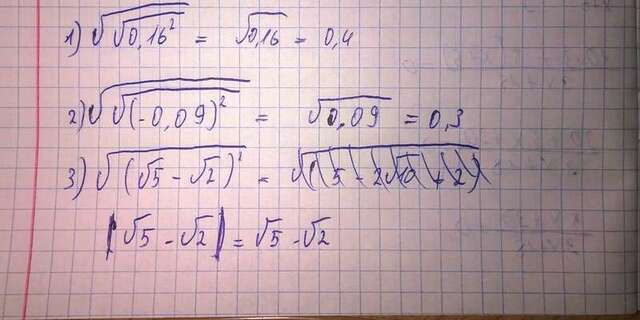 1) √√0,16² = √0,16 = 0,4
2) √√(-0,09)² = √0,09 = 0,3
3) √(√5 - √2)² = √(5 - 2√10 + 2)
|√5 - √2| = √5 - √2